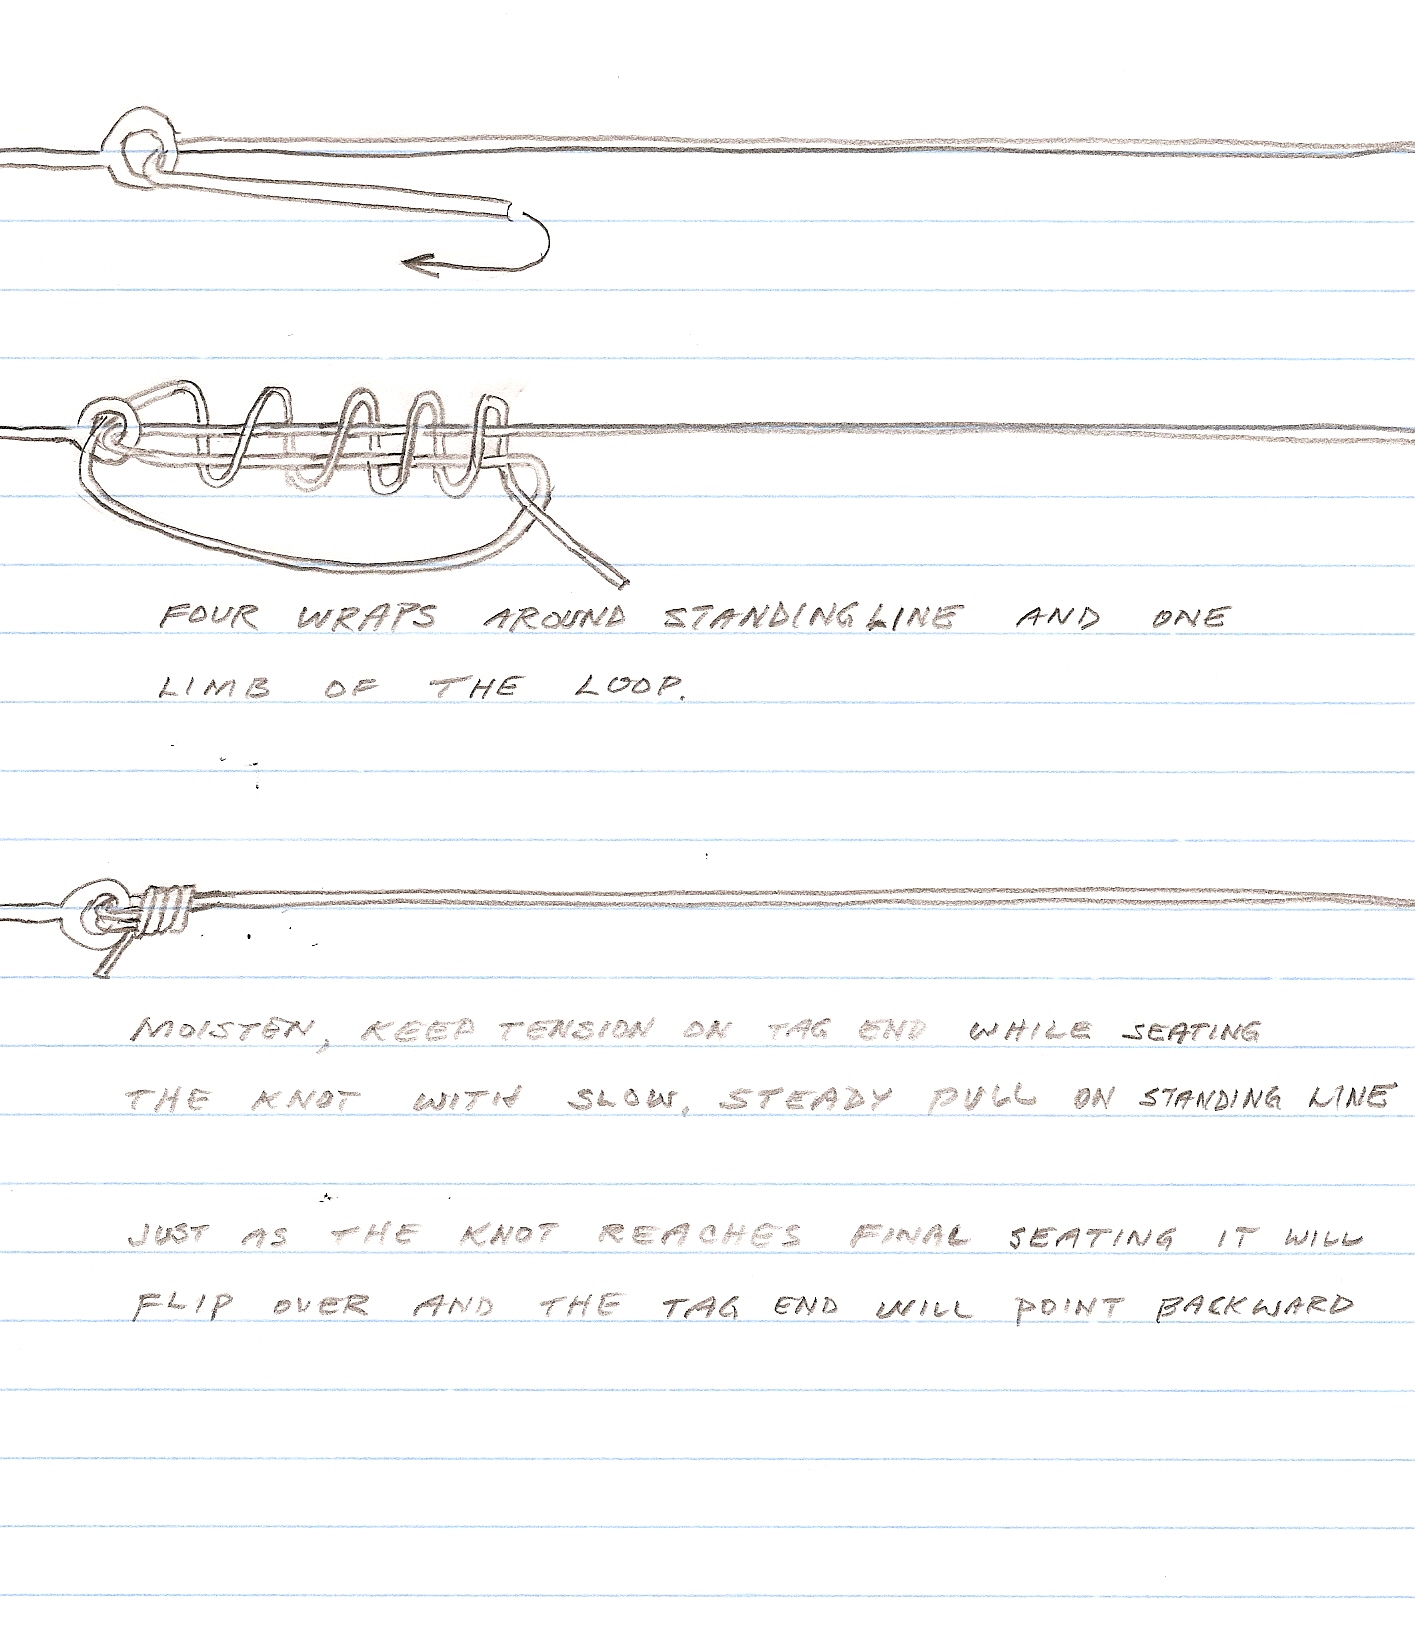 FOUR WRAPS AROUND STANDING LINE AND ONE
LIMB OF THE LOOP.
MOISTEN, KEEP TENSION ON TAG END WHILE SEATING
THE KNOT WITH SLOW, STEADY PULL ON STANDING LINE
JUST AS THE KNOT REACHES FINAL SEATING IT WILL
FLIP OVER AND THE TAG END WILL POINT BACKWARD